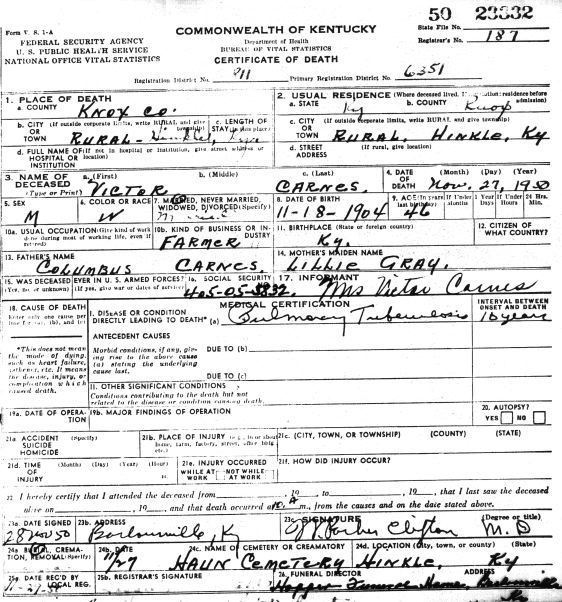 50 23832
Form V. S. 1-A
COMMONWEALTH OF KENTUCKY
State File No.
FEDERAL SECURITY AGENCY
Department of Health
Registrar's No. 187
U. S. PUBLIC HEALTH SERVICE
BUREAU OF VITAL STATISTICS
NATIONAL OFFICE VITAL STATISTICS
CERTIFICATE OF DEATH
Registration District No. 911 Primary Registration District No. 6351
1. PLACE OF DEATH
2. USUAL RESIDENCE (Where deceased lived. residence before admission)
a. COUNTY KNOX CO.
a. STATE Ky b. COUNTY Knox
b. CITY (If outside corporate limits, write RURAL and give township) OR TOWN RURAL - Hinkle,
c. LENGTH OF STAY (in this place)
c. CITY (If outside corporate limits, write RURAL and give township) OR TOWN RURAL, HINKLE, Ky
d. FULL NAME OF (If not in hospital or institution, give street address or location) HOSPITAL OR INSTITUTION
d. STREET ADDRESS (If rural, give location)
3. NAME OF DECEASED (Type or Print)
a. (First) VICTOR b. (Middle) c. (Last) CARNES
4. DATE OF DEATH (Month) (Day) (Year) Nov. 27, 1950
5. SEX M
6. COLOR OR RACE W
7. MARRIED, NEVER MARRIED, WIDOWED, DIVORCED (Specify)
8. DATE OF BIRTH 11-18-1904
9. AGE (In years last birthday) 46 If Under 1 Year Months Days If Under 24 Hrs. Hours Min.
10a. USUAL OCCUPATION (Give kind of work done during most of working life, even if retired)
10b. KIND OF BUSINESS OR INDUSTRY FARMER
11. BIRTHPLACE (State or foreign country) Ky.
12. CITIZEN OF WHAT COUNTRY?
13. FATHER'S NAME COLUMBUS CARNES
14. MOTHER'S MAIDEN NAME LILLIE GRAY.
15. WAS DECEASED EVER IN U. S. ARMED FORCES? (Yes, no or unknown) (If yes, give war or dates of service)
16. SOCIAL SECURITY 405-05-5832
17. INFORMANT Mrs Victor Carnes
MEDICAL CERTIFICATION
INTERVAL BETWEEN ONSET AND DEATH
18. CAUSE OF DEATH
Enter only one cause per line for (a), (b), and (c)
I. DISEASE OR CONDITION DIRECTLY LEADING TO DEATH* (a) Pulmonary Tuberculosis 10 years
ANTECEDENT CAUSES
*This does not mean the mode of dying, such as heart failure, asthenia, etc. It means the disease, injury, or complication which caused death.
Morbid conditions, if any, giving rise to the above cause (a) stating the underlying cause last.
DUE TO (b)
DUE TO (c)
II. OTHER SIGNIFICANT CONDITIONS
Conditions contributing to the death but not related to the disease or condition causing death.
19a. DATE OF OPERATION
19b. MAJOR FINDINGS OF OPERATION
20. AUTOPSY? YES NO
21a. ACCIDENT SUICIDE HOMICIDE (Specify)
21b. PLACE OF INJURY (e.g., in or about home, farm, factory, street, office bldg., etc.)
21c. (CITY, TOWN, OR TOWNSHIP) (COUNTY) (STATE)
21d. TIME OF INJURY (Month) (Day) (Year) (Hour)
21e. INJURY OCCURRED WHILE AT WORK NOT WHILE AT WORK
21f. HOW DID INJURY OCCUR?
22 I hereby certify that I attended the deceased from , 19 , to , 19 , that I last saw the deceased
alive on , 19 , and that death occurred at m., from the causes and on the date stated above.
23a. DATE SIGNED 28 Nov 50
23b. ADDRESS Barbourville, Ky
23c. SIGNATURE Clifton (Degree or title) M. D
24a BURIAL, CREMATION, REMOVAL (Specify)
24b. DATE 11/27
24c. NAME OF CEMETERY OR CREAMATORY HAUN CEMETERY
24d. LOCATION (City, town, or county) (State) HINKLE, Ky
25a. DATE REC'D BY LOCAL REG.
25b. REGISTRAR'S SIGNATURE
26. FUNERAL DIRECTOR ADDRESS
Hopper Funeral Home, Barbourville Ky